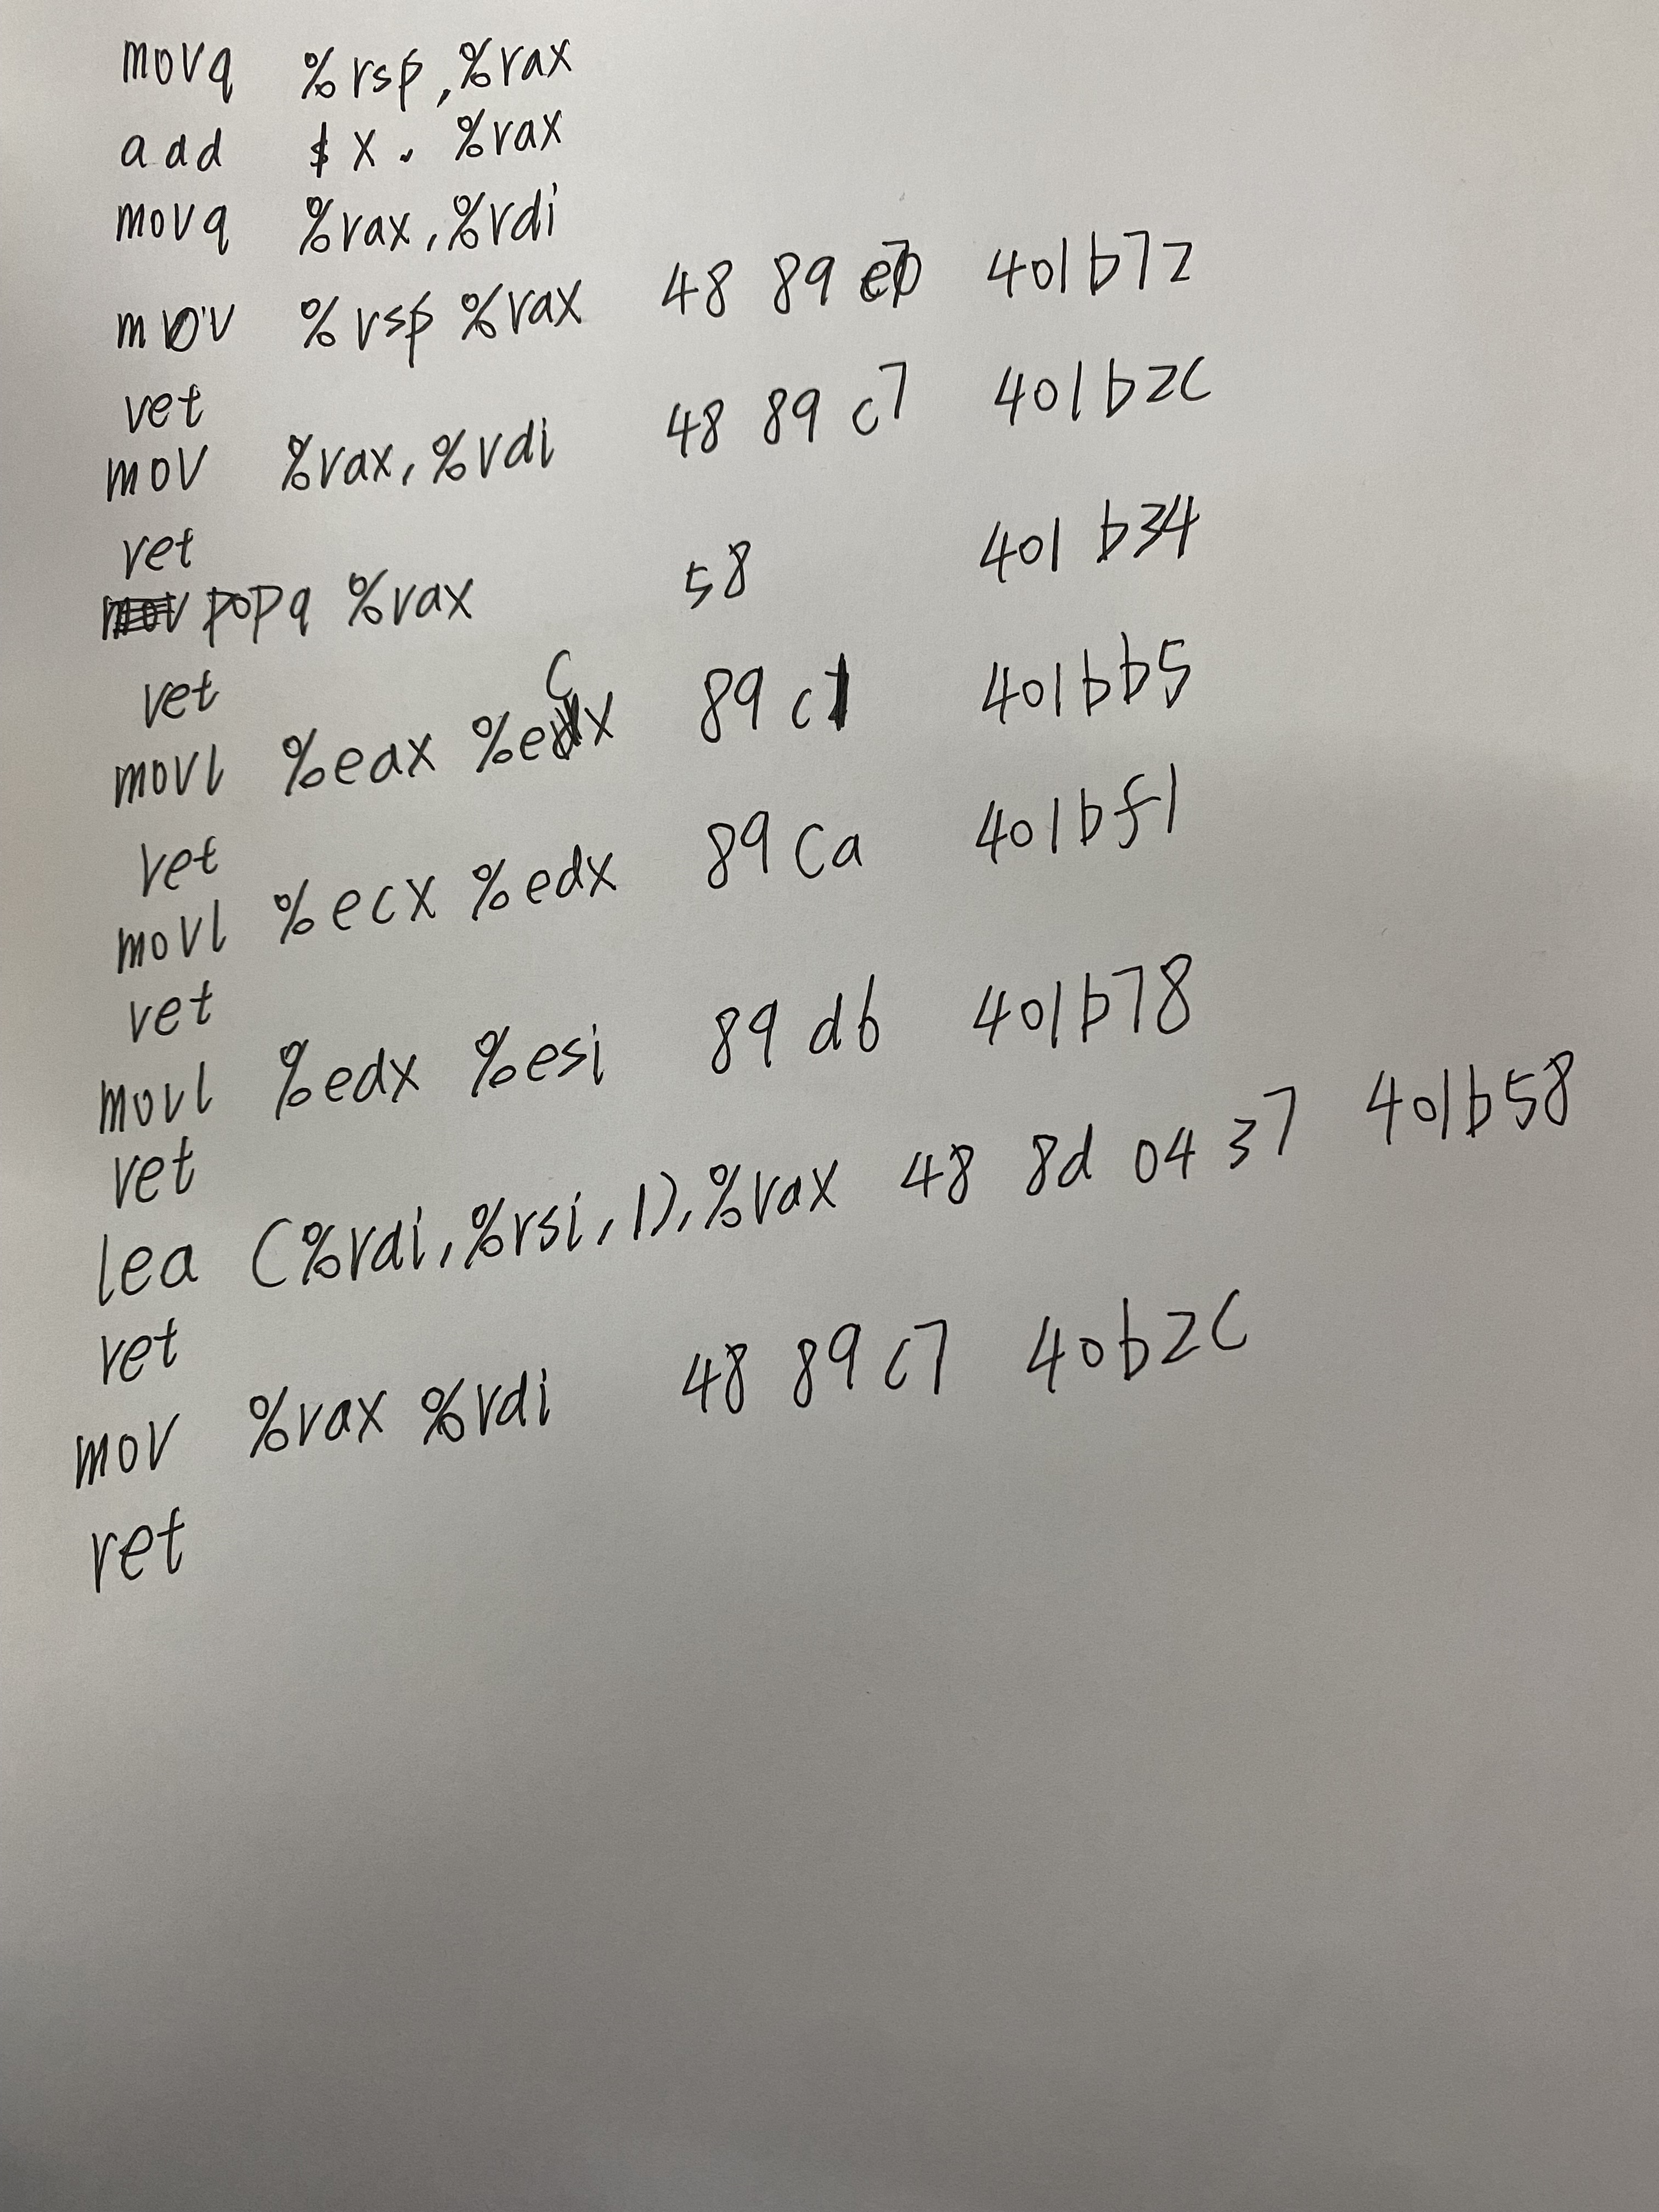 movq %rsp, %rax
add $x, %rax
movq %rax, %rdi
mov %rsp %rax 48 89 e0 401b72
ret
mov %rax, %rdi 48 89 c7 401b2c
ret
popq %rax 58 401b34
ret
movl %eax %ecx 89 c1 401bb5
ret
movl %ecx %edx 89 ca 401bf1
ret
movl %edx %esi 89 d6 401b78
ret
lea (%rdi, %rsi, 1), %rax 48 8d 04 37 401b58
ret
mov %rax %rdi 48 89 c7 40b2c
ret